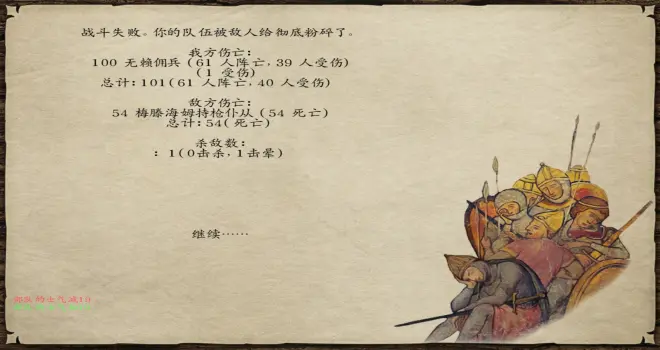 战斗失败。你的队伍被敌人给彻底粉碎了。
我方伤亡：
100 无赖佣兵（61 人阵亡，39 人受伤）
（1 受伤）
总计：101（61 人阵亡，40 人受伤）
敌方伤亡：
54 梅滕海姆持枪仆从（54 死亡）
总计：54（死亡）
杀敌数：
：1（0击杀，1击晕）
继续……
部队的士气减10